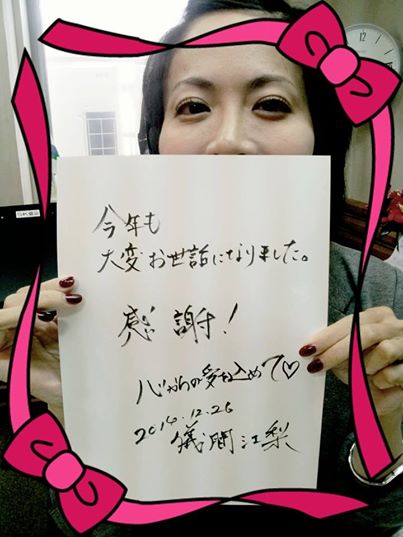 今年も
大変お世話になりました。
感謝!
心からの愛を込めて♡
2014.12.26
儀間江梨